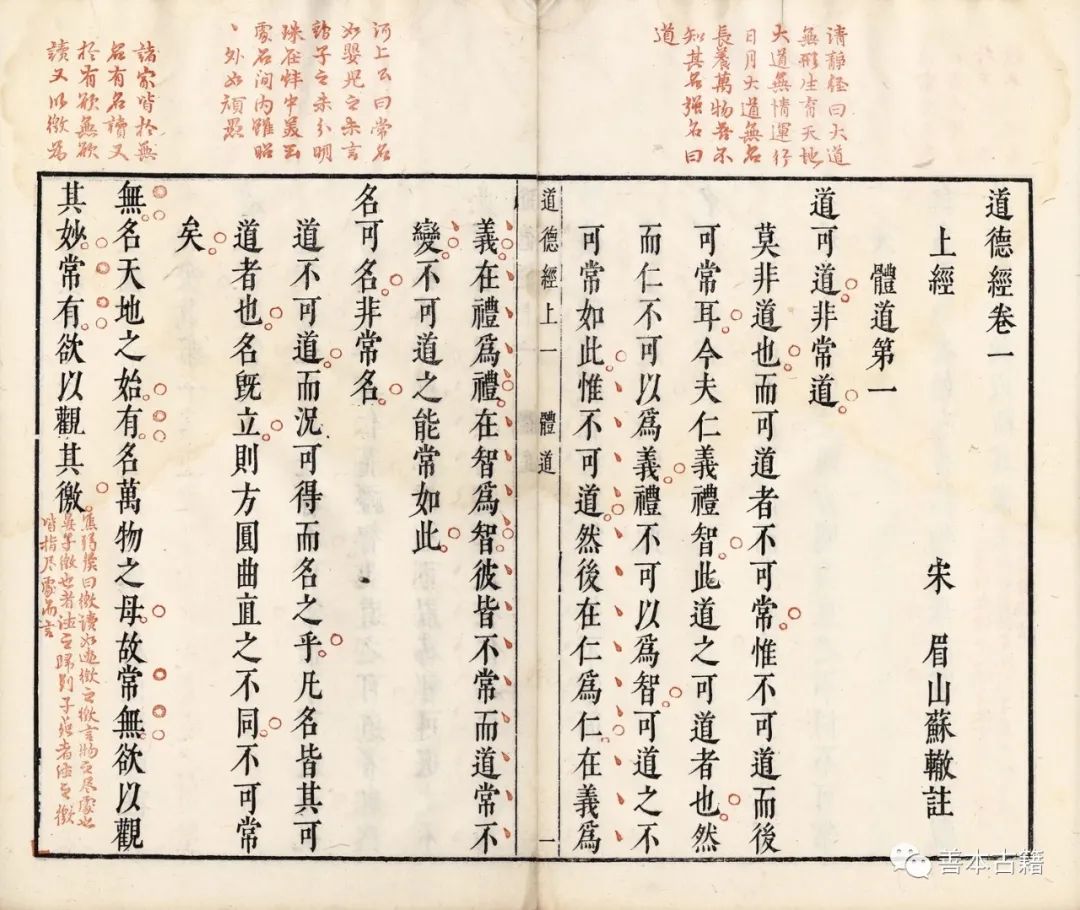 清靜經曰大道
無形生育天地
大道無情運行
日月大道無名
長養萬物吾不
知其名強名曰
道
道德經卷一
上經
宋 眉山蘇轍註
體道第一
道可道非常道
莫非道也而可道者不可常惟不可道而後
可常耳今夫仁義禮智此道之可道者也然
而仁不可以爲義禮不可以爲智可道之不
可常如此惟不可道然後在仁爲仁在義爲
道德經上一 體道 一
河上公曰常名
如嬰兒之未言
雞子之未分明
珠在蚌中美玉
處石間內雖昭
丶外如頑愚
諸家皆於無
名有名讀又
於有欲無欲
讀又以徼爲
義在禮爲禮在智爲智彼皆不常而道常不
變不可道之能常如此
名可名非常名
道不可道而況可得而名之乎凡名皆其可
道者也名旣立則方圓曲直之不同不可常
矣
無名天地之始有名萬物之母故常無欲以觀
其妙常有欲以觀其徼
曰徼讀如邊徼之徼言物之尽處也
晏子徼也者德之歸列子死者德之徼
皆指尽處而言
善本古籍